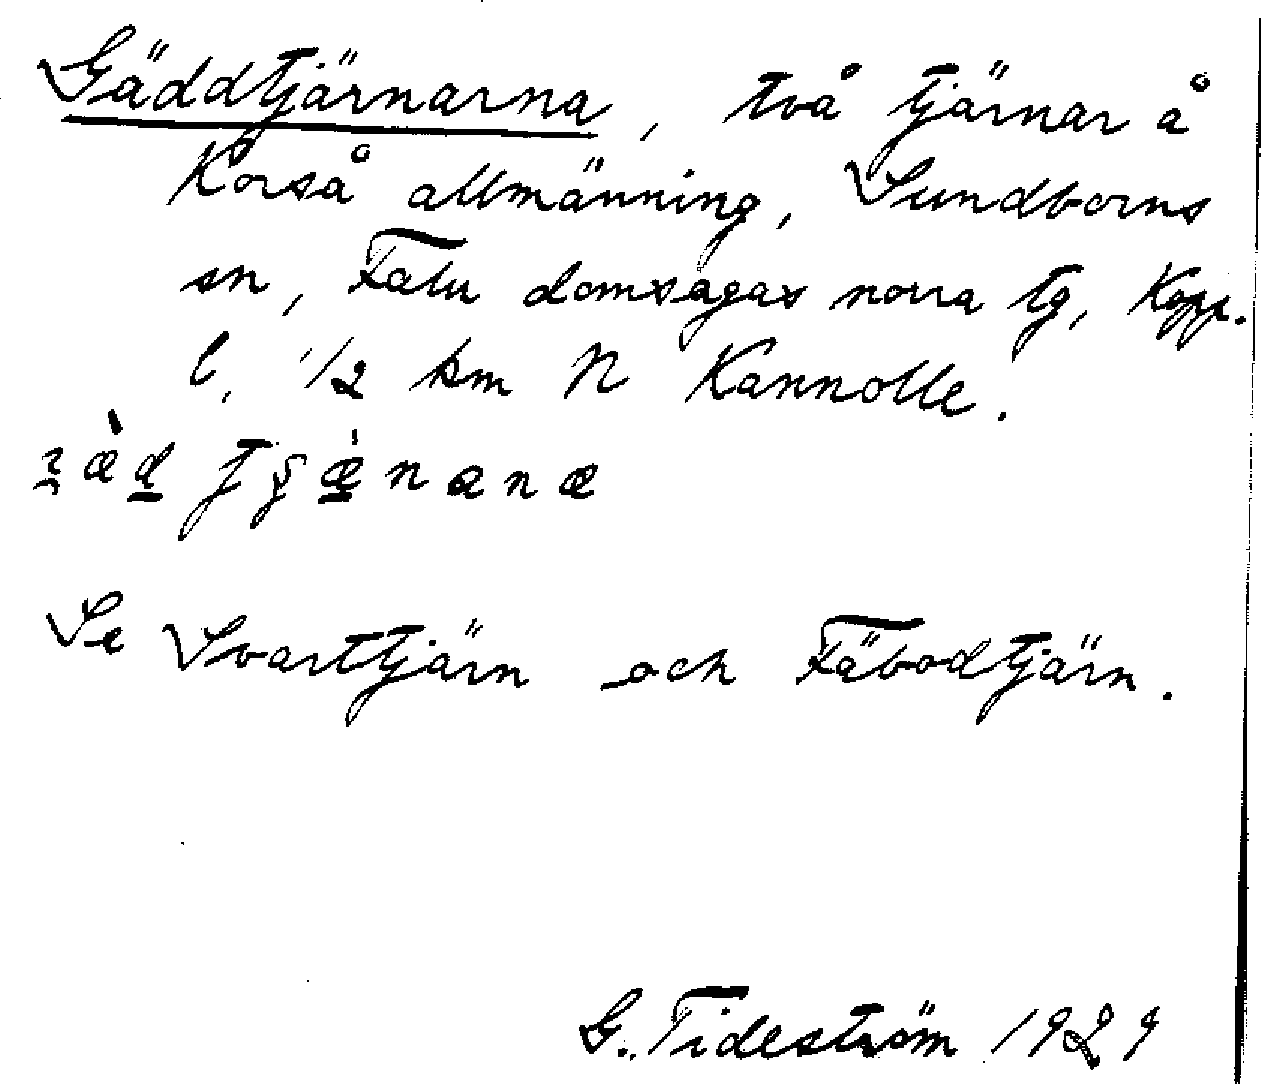 Gäddtjärnarna, två tjärnar å
Korså allmänning, Sundborns
sn, Falu domsagas norra tg, Kopp.
l. 1/2 km N Kannolle.
Se Svarttjärn och Fäbodtjärn.
G. Tideström 1929